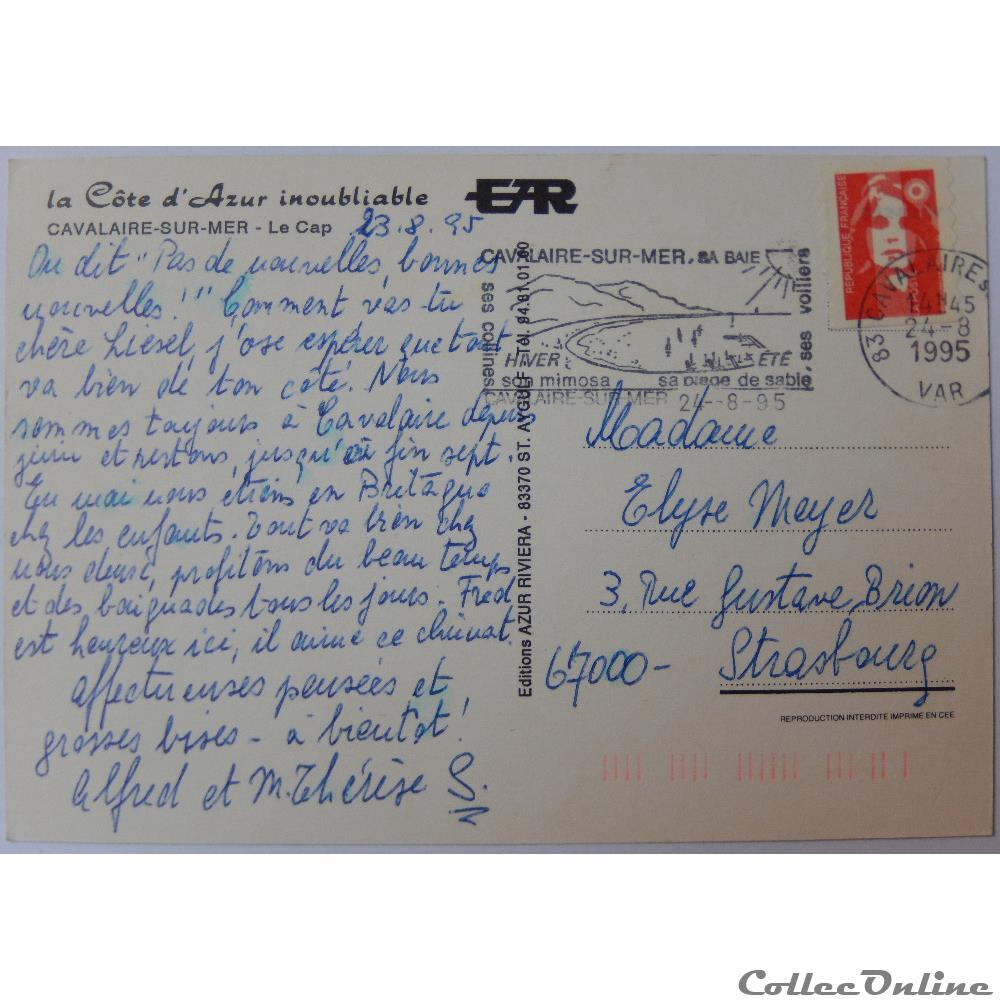 la Côte d'Azur inoubliable
CAVALAIRE-SUR-MER - Le Cap
23.8.95
On dit "Pas de nouvelles, bonnes
nouvelles!" Comment vas-tu
chère Liesel, j'ose espérer que tout
va bien de ton côté. Nous
sommes toujours à Cavalaire depuis
juin et restons, jusqu'à fin sept.
En mai nous étions en Bretagne
chez les enfants. Tout va bien chez
nous deux, profitons du beau temps
et des baignades tous les jours. Fred
est heureux ici, il aime ce climat.
affectueuses pensées et
grosses bises - à bientôt!
Alfred et M.Thérèse S.
EAR
Editions AZUR RIVIERA - 83370 ST. AYGULF - Tél. 94.81.01.60
CAVALAIRE-SUR-MER. SA BAIE
ses collines
ses voiliers
HIVER
ÉTÉ
son mimosa sa plage de sable
CAVALAIRE-SUR-MER 24-8-95
REPUBLIQUE FRANÇAISE
83 CAVALAIRE S
14H45
24-8
1995
VAR
Madame
Elyse Meyer
3, Rue Gustave Brion
67000- Strasbourg
REPRODUCTION INTERDITE IMPRIME EN CEE
CollecOnline